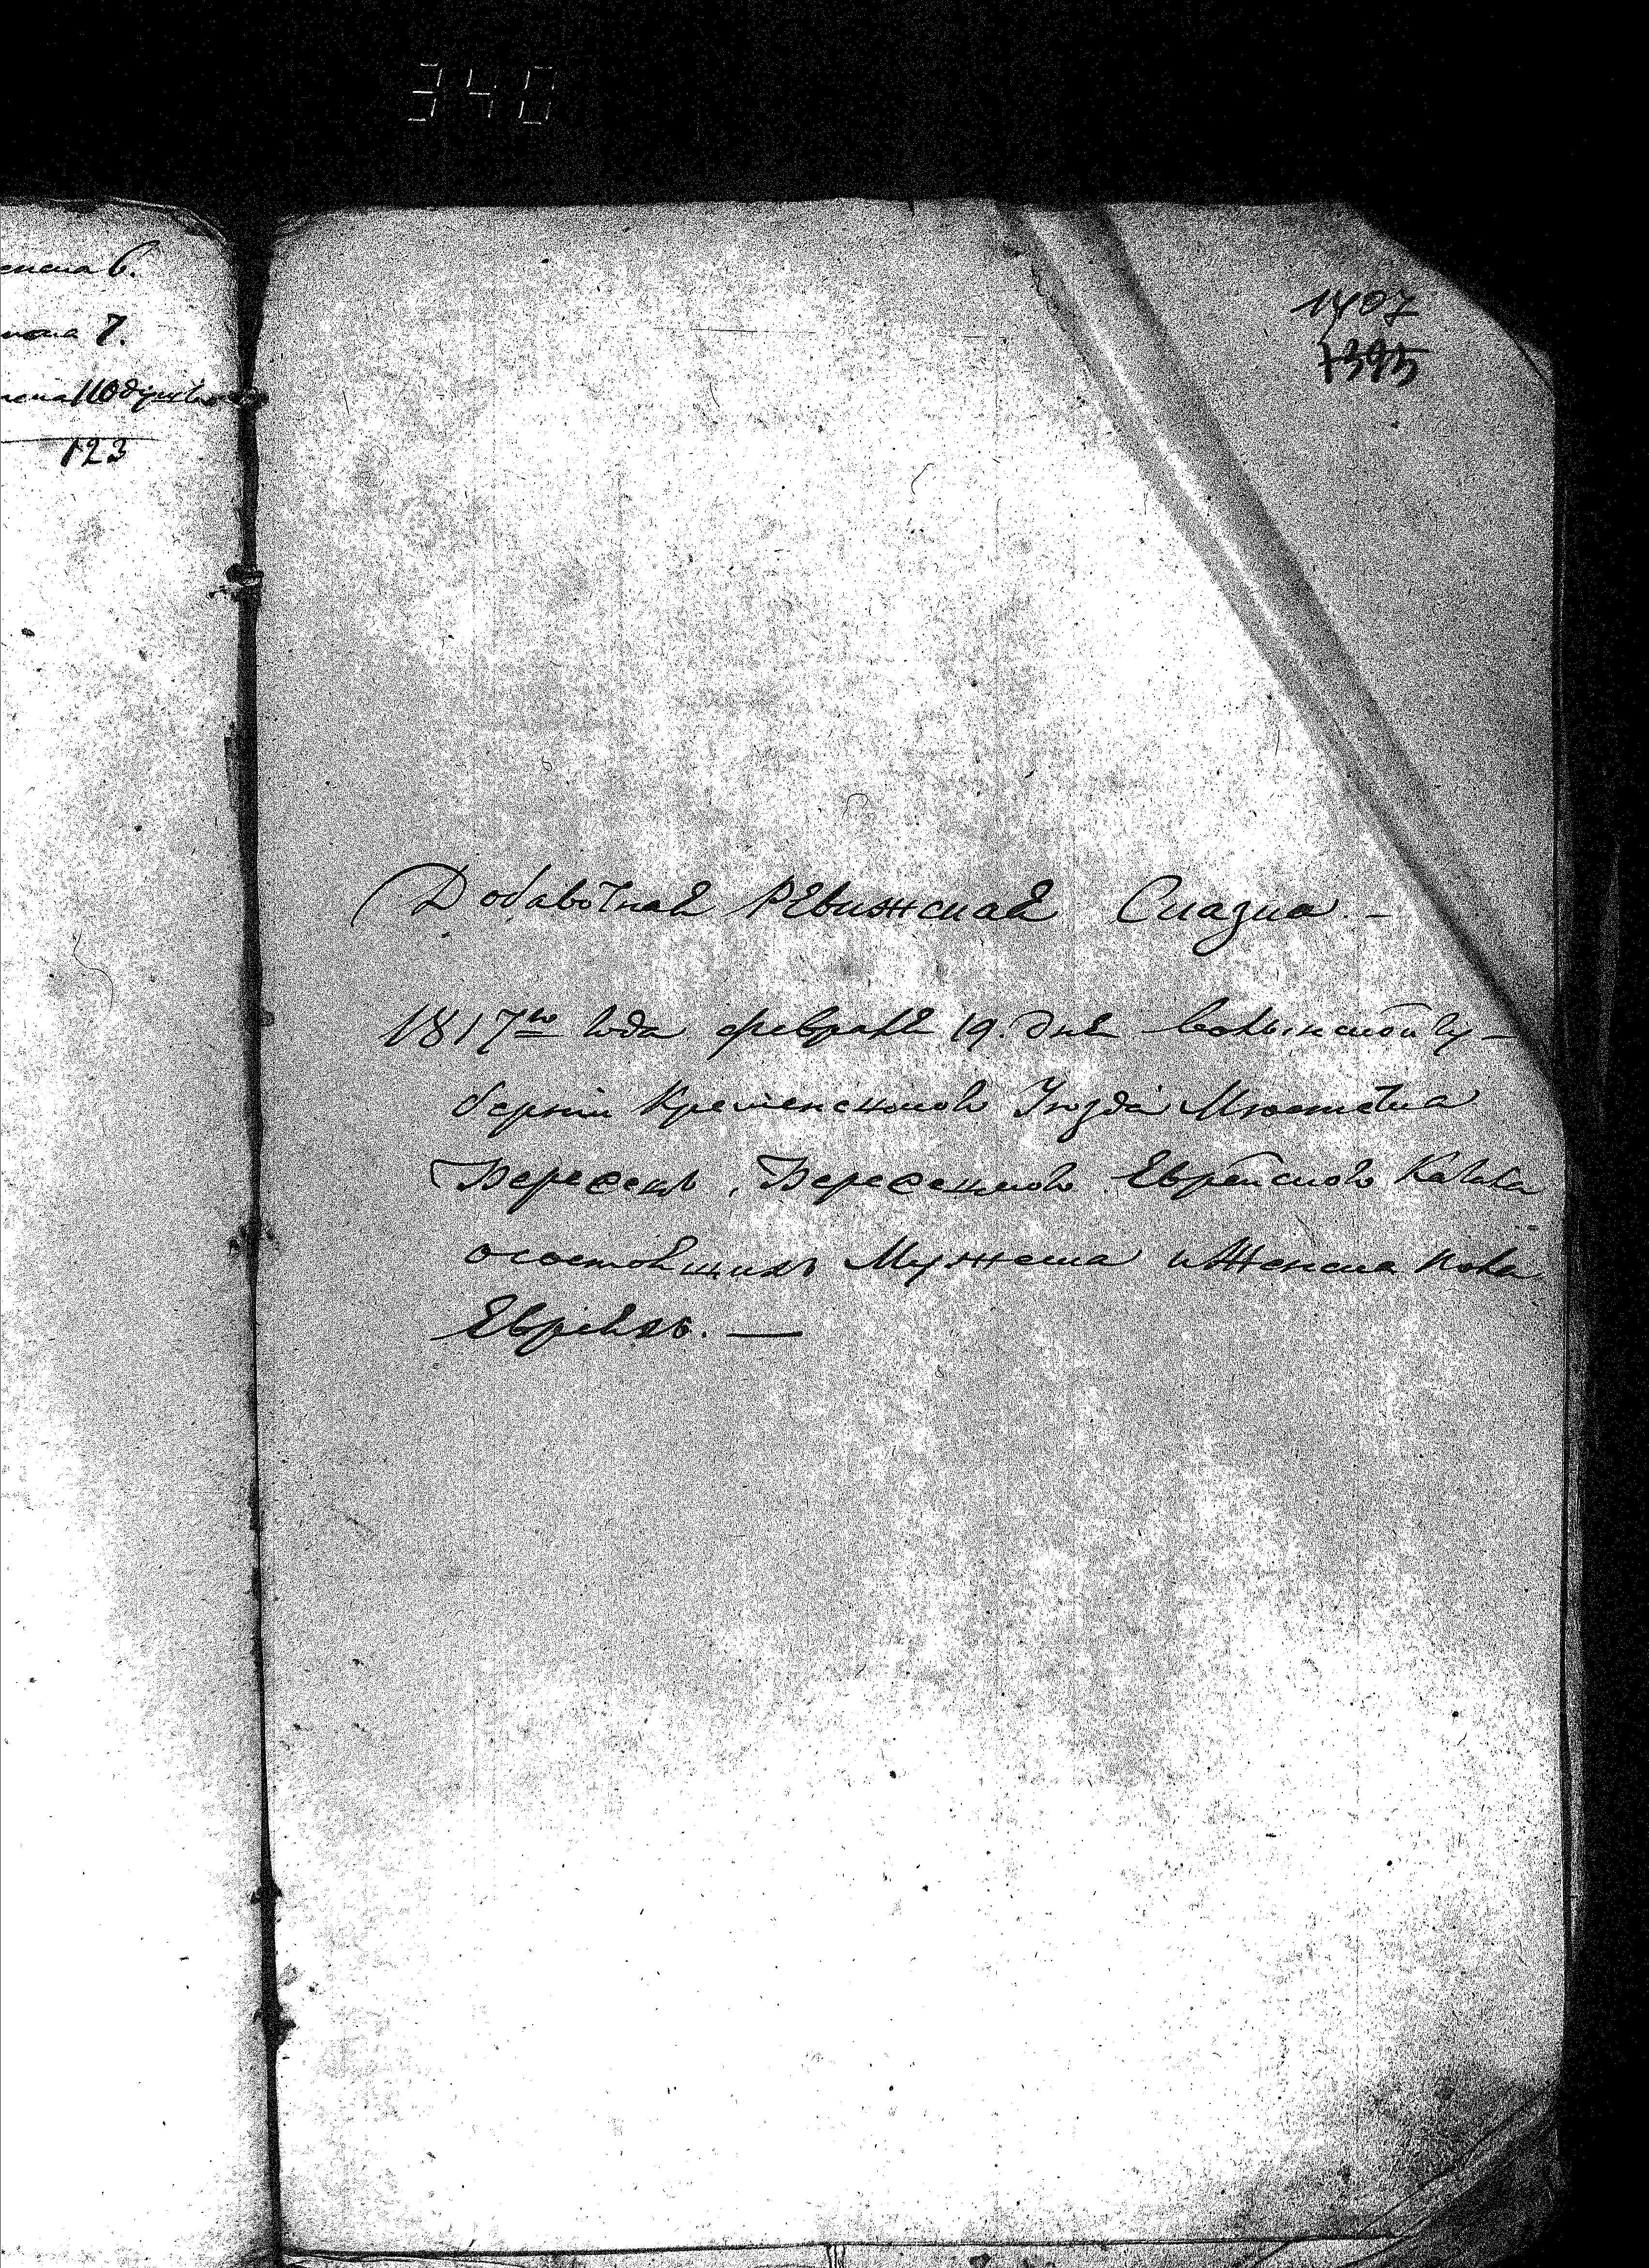 340
6.
7.
110 душъ
123
1407
1395
Добавочная Ревижская Сказка. –
1817го года февраля 19. дня волынской гу–
берніи Кременецкого Уезда Местечка
Бересскъ, Бересского Еврейского Кагала
осостоящихъ Мужеска и Женска пола
Евреяхъ. —